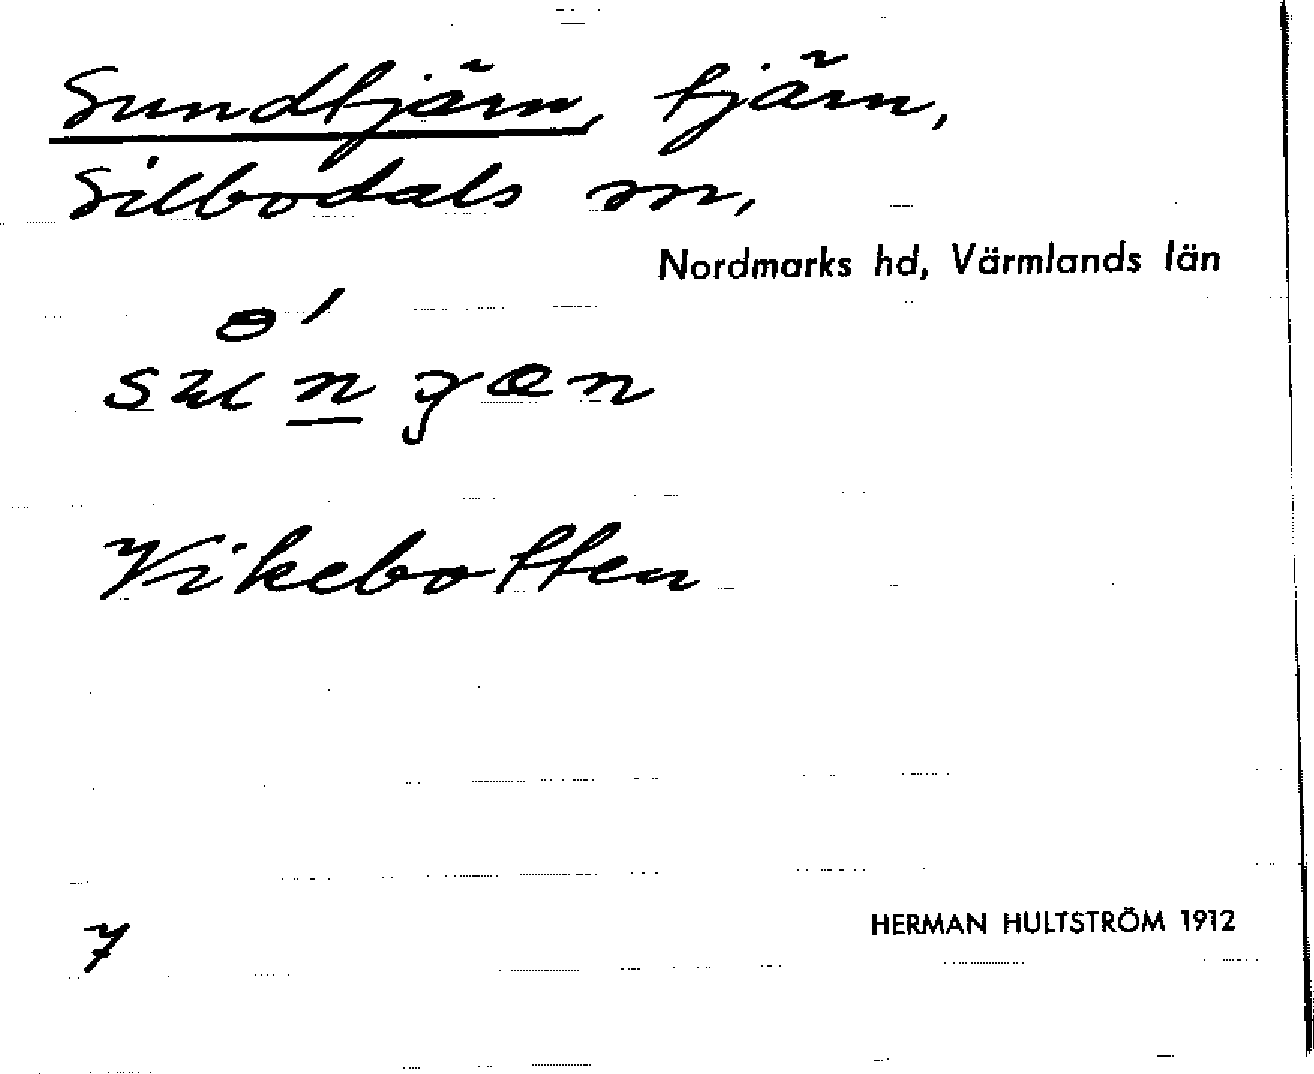 Sundtjärn, tjärn,
Silbodals sn,
Nordmarks hd, Värmlands län
Vikebotten
7
HERMAN HULTSTRÖM 1912